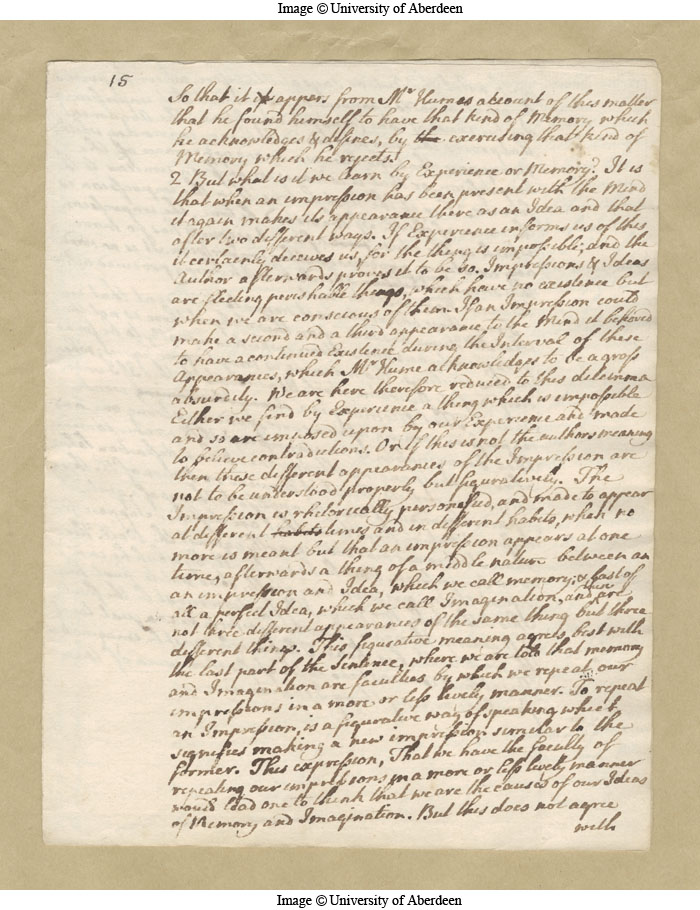 Image © University of Aberdeen
15
So that it appers from Mr Humes account of this matter
that he found himself to have that kind of Memory which
he acknowledges & defines, by the exercising that kind of
Memory which he rejects.
2 But what is it we learn by Experience or Memory? It is
that when an impression has been present with the Mind
it again makes its appearance there as an Idea and that
after two different ways. If Experience informs us of this
it certainly deceives us, for the thing is impossible, and the
Author afterwards proves it to be so. Impressions & Ideas
are fleeting perishable things, which have no existence but
when we are conscious of them. If an Impression could
make a second and a third appearance to the Mind it behoved
to have a continued Existence during the Interval of these
Appearances, which Mr Hume acknowledges to be a gross
absurdity. We are here therefore reduced to this dilemma
Either we find by Experience a thing which is impossible
and so are imposed upon by our Experience and made
to believe contradictions. Or if this is not the authors meaning
then these different appearances of the Impression are
not to be understood properly but figuratively. The
Impression is rhetorically personified, and made to appear
at different habits times and in different habits, when no
more is meant but that an impression appears at one
time, afterwards a thing of a middle nature between an
an impression and Idea, which we call memory, & last of
all a perfect Idea, which we call Imagination, and are
not three different appearances of the same thing but three
different things. This figurative meaning agrees best with
the last part of the Sentence, where we are told that memory
and Imagination are faculties by which we repeat our
impressions in a more or less lively manner. To repeat
an Impression, is a figurative way of speaking which
signifies making a new impression similar to the
former. This expression, That we have the faculty of
repeating our impressions in a more or less lively manner
would lead one to think that we are the causes of our Ideas
of Memory and Imagination. But this does not agree
with
Image © University of Aberdeen